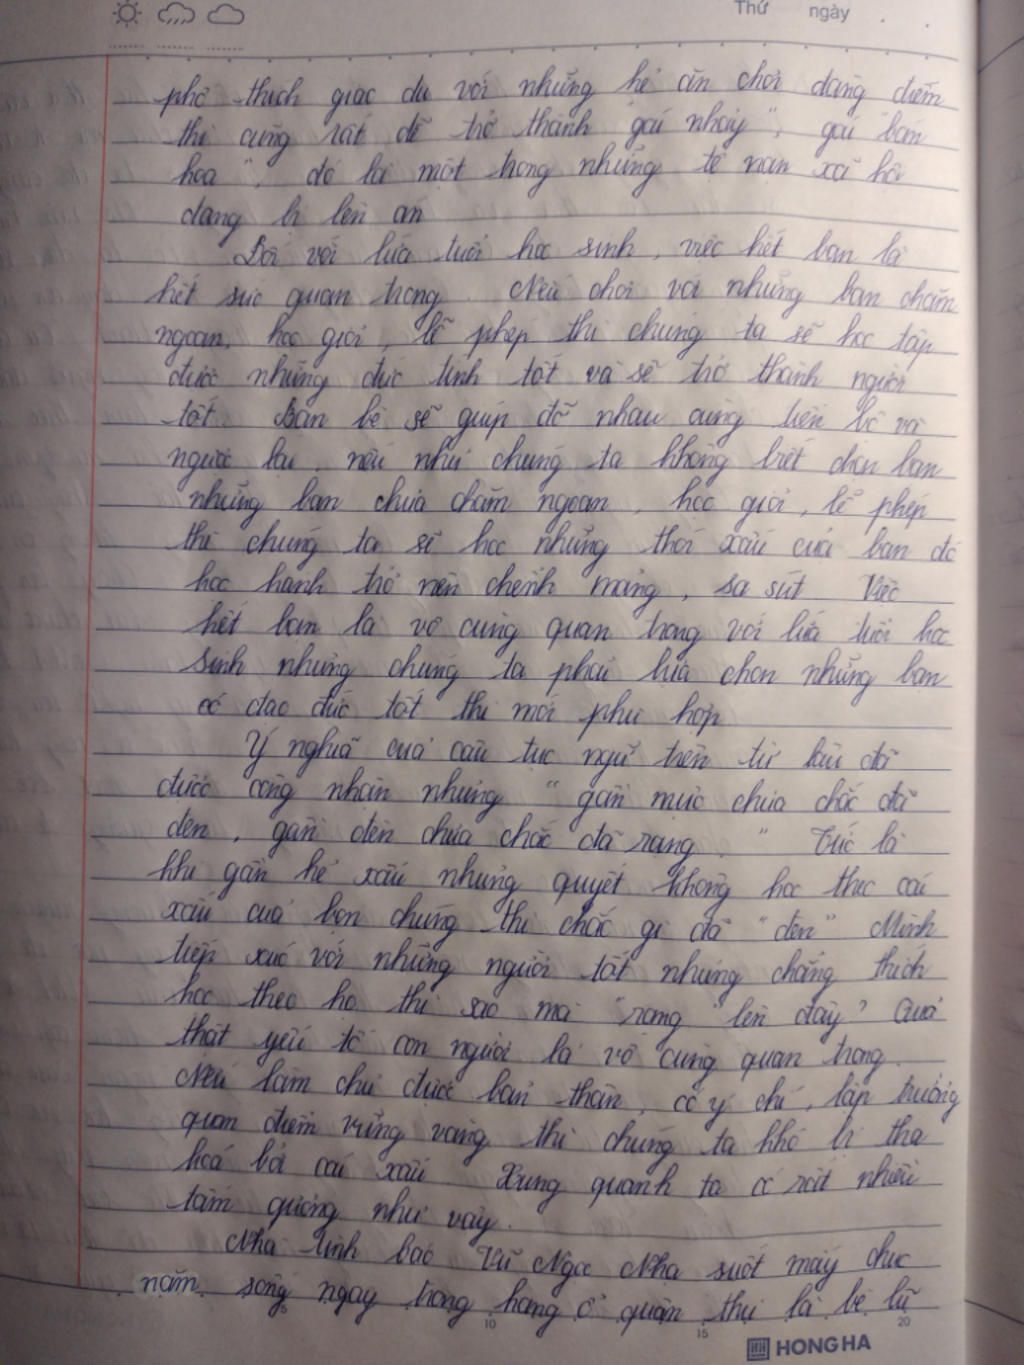 Thứ ngày
phờ thích giao du với những kẻ ăn chơi đàng điếm
thì cũng rất dễ trở thành gái nhảy", gái bán
hoa", đó là một trong những tệ nạn xã hội
đang bị lên án
Đối với lứa tuổi học sinh, việc kết bạn là
hết sức quan trọng. Nếu chơi với những bạn chăm
ngoan, học giỏi, lễ phép thì chúng ta sẽ học tập
được những đức tính tốt và sẽ trở thành người
tốt. Bạn bè sẽ giúp đỡ nhau cùng tiến bộ và
ngược lại, nếu như chúng ta không biết chọn bạn
những bạn chưa chăm ngoan, học giỏi, lễ phép
thì chúng ta sẽ học những thói xấu của bạn đó
học hành trở nên chểnh mảng, sa sút. Việc
kết bạn là vô cùng quan trọng với lứa tuổi học
sinh nhưng chúng ta phải lựa chọn những bạn
có đạo đức tốt thì mới phù hợp
Ý nghĩa của câu tục ngữ trên từ lâu đã
được công nhận nhưng "gần mực chưa chắc đã
đen, gần đèn chưa chắc đã rạng." Tức là
khi gần kẻ xấu nhưng quyết không học theo cái
xấu của bọn chúng thì chắc gì đã "đen" Mình
tiếp xúc với những người tốt nhưng chẳng thích
học theo họ thì sao mà "rạng" lên đây? Quả
thật yếu tố con người là vô cùng quan trọng.
Nếu làm chủ được bản thân, có ý chí, lập trường
quan điểm vững vàng thì chúng ta khó bị tha
hoá bởi cái xấu. Xung quanh ta có rất nhiều
tấm gương như vậy.
Nhà tình báo Vũ Ngọc Nhạ suốt mấy chục
năm sống ngay trong hang ổ quân thù là bè lũ
10 15 20
HONG HA